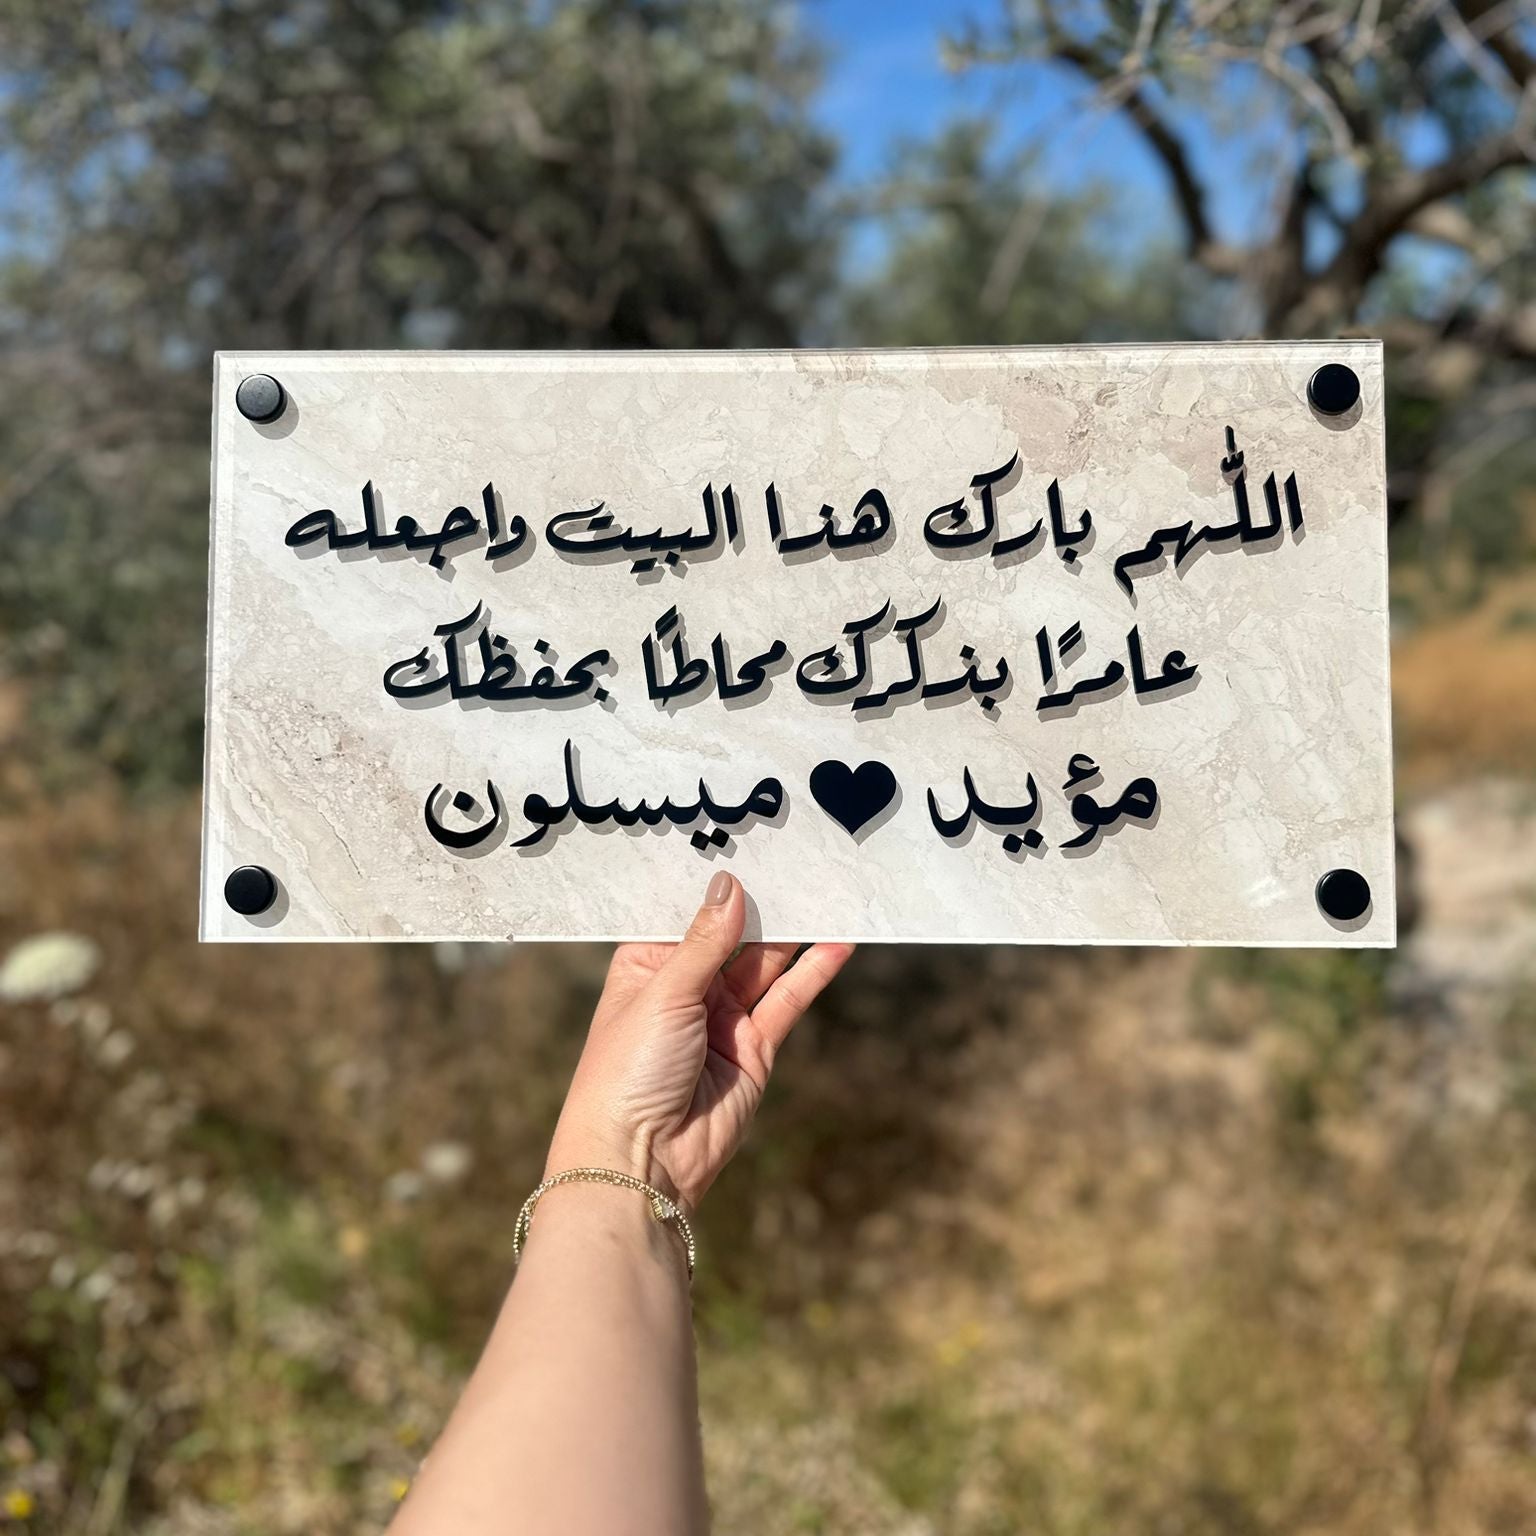 اللّهم بارك هذا البيت واجعله
عامرًا بذكرك محاطًا بحفظك
مؤيد ♥ ميسلون